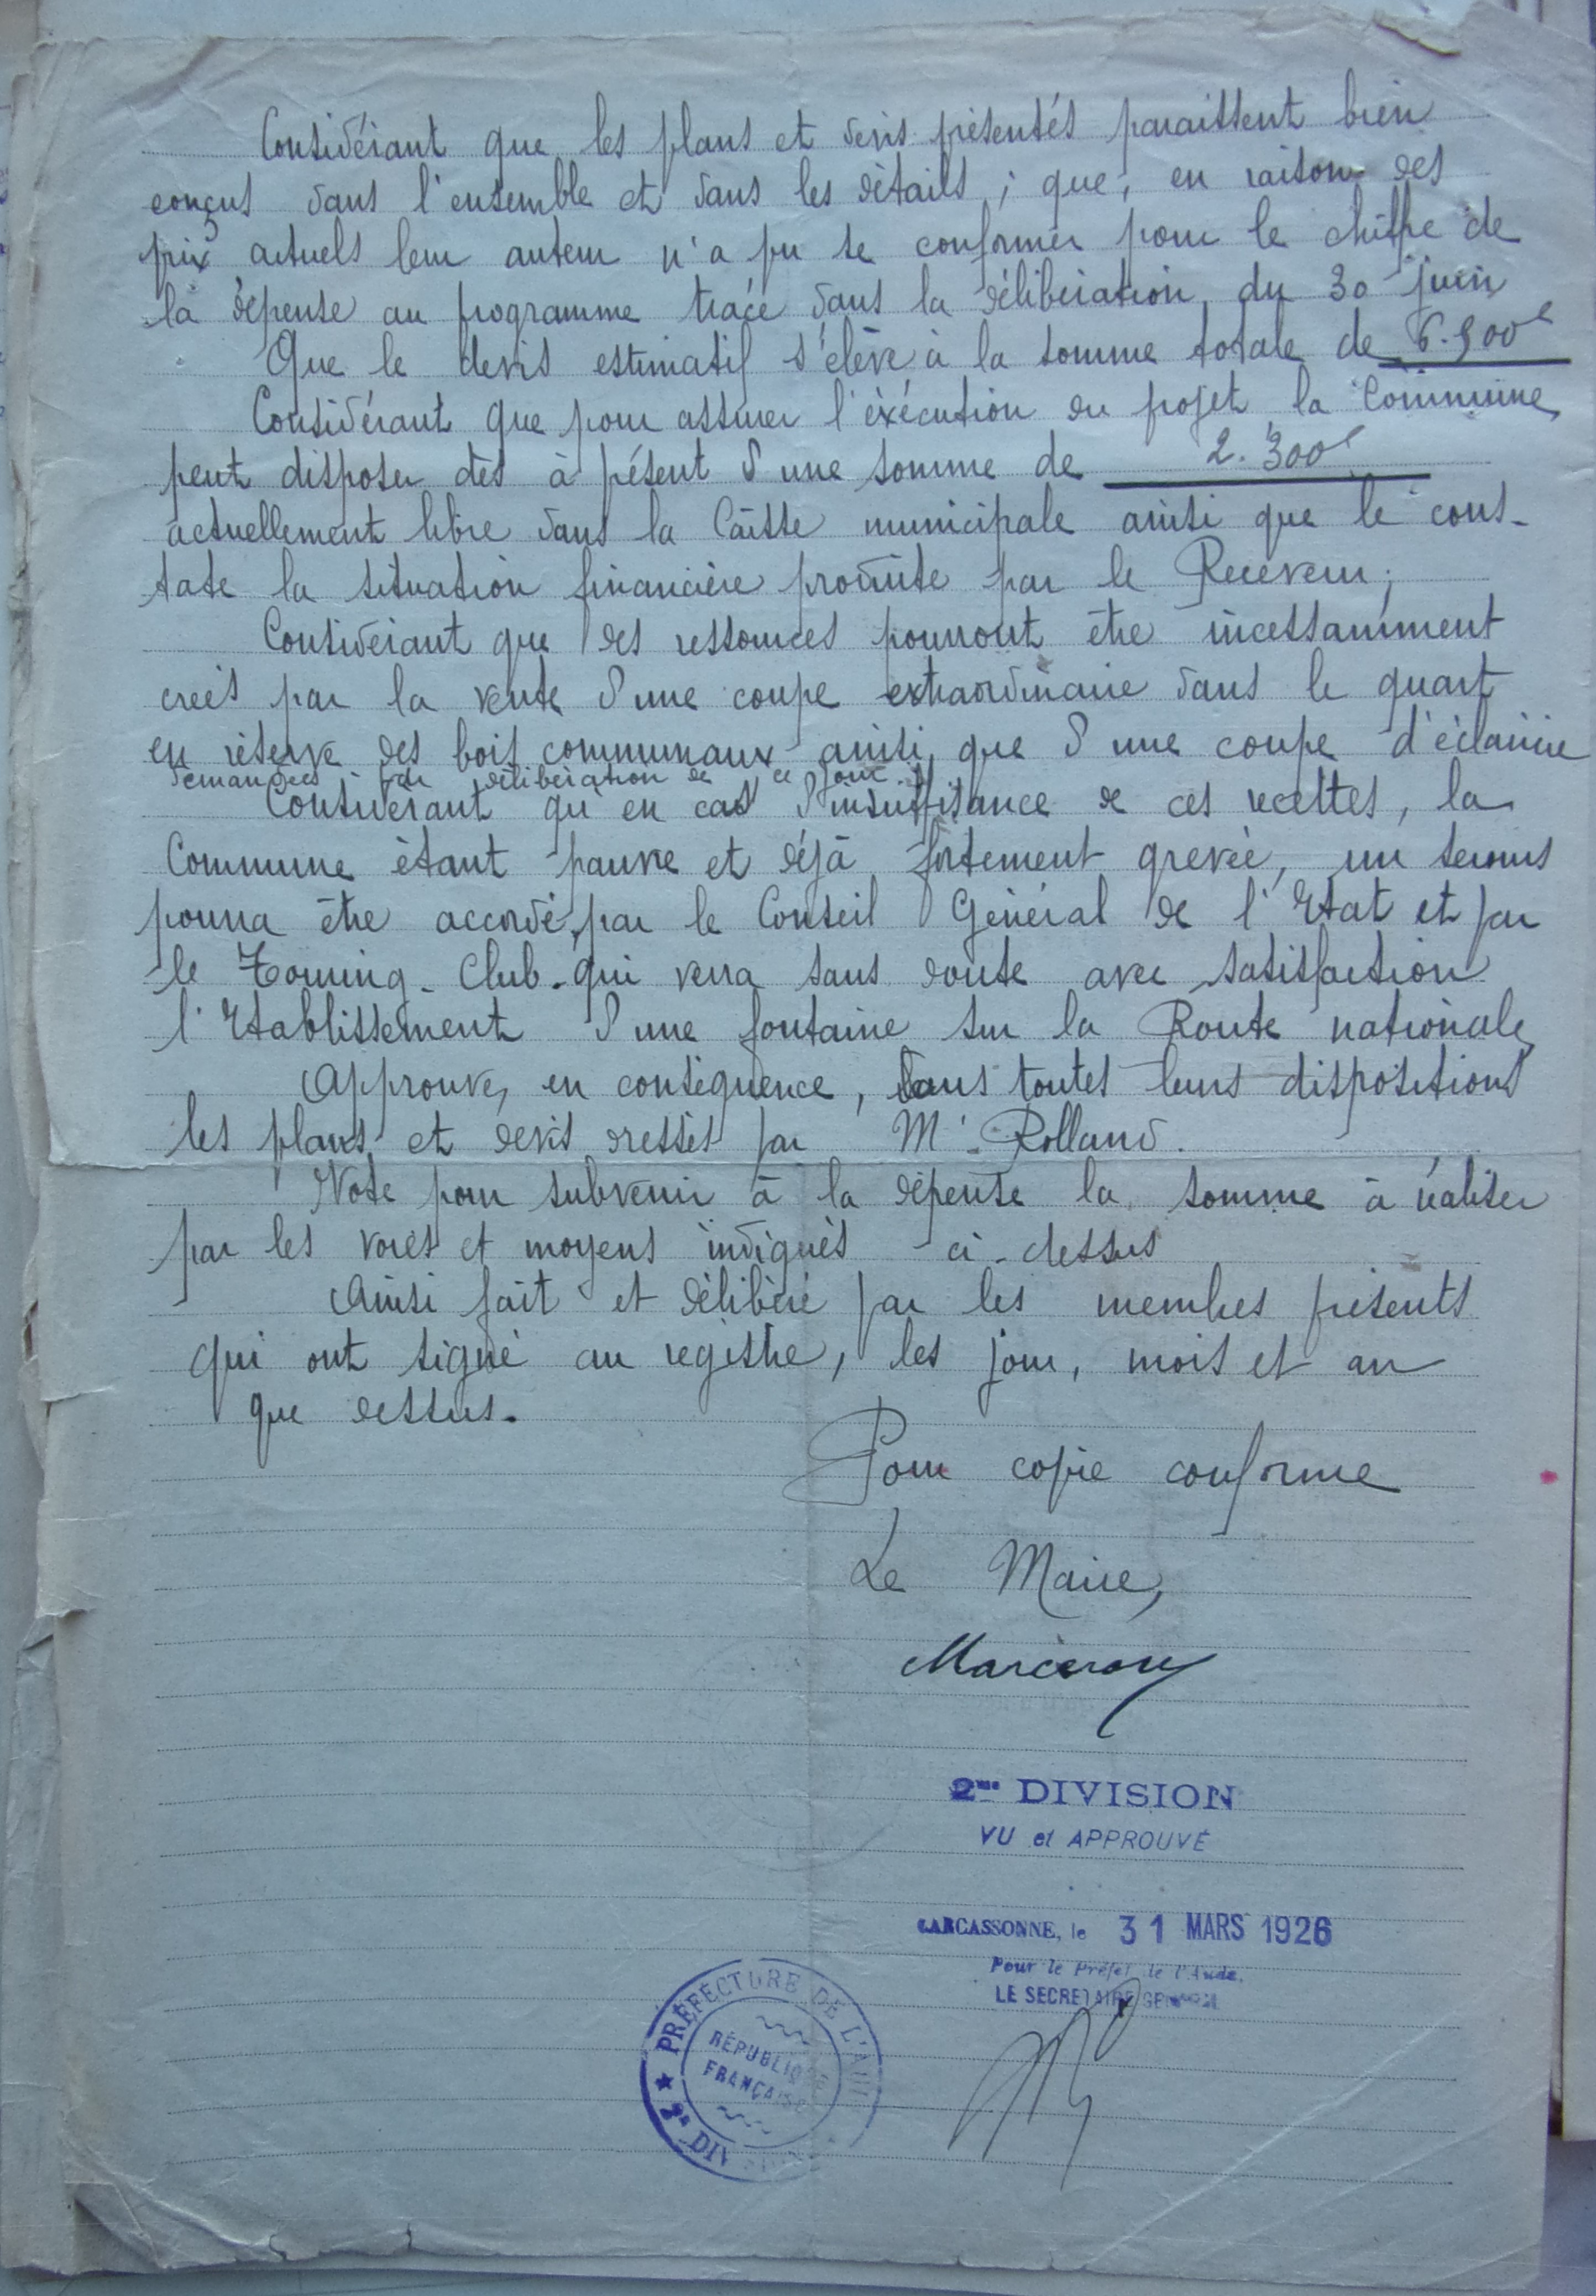 Considérant que les plans et devis présentés paraissent bien
conçus dans l'ensemble et dans les détails ; que, en raison des
prix actuels leur auteur n'a pu se conformer pour le chiffre de
la dépense au programme tracé dans la délibération du 30 juin
Que le devis estimatif s'élève à la somme totale de 6.900f
Considérant que pour assurer l'éxécution du projet la Commune
peut disposer dès à présent d'une somme de 2.300f
actuellement libre dans la Caisse municipale ainsi que le cons-
tate la situation financière produite par le Receveur ;
Considérant que des ressources pourront être incessamment
créés par la vente d'une coupe extraordinaire dans le quart
en réserve des bois communaux ainsi que d'une coupe d'éclaircie
demandées par délibération de ce jour
Considérant qu'en cas d'insuffisance de ces recettes, la
Commune étant pauvre et déjà fortement grevée, un secours
pourra être accordé par le Conseil Général de l'Etat et par
le Touring-Club qui verra sans doute avec satisfaction
l'Etablissement d'une fontaine sur la Route nationale
Approuve, en conséquence, dans toutes leurs dispositions
les plans et devis dressés par Mr Rolland.
Vote pour subvenir à la dépense la somme à réaliser
par les voies et moyens indiqués ci-dessus
Ainsi fait et délibéré par les membres présents
qui ont signé au registre, les jour, mois et an
que dessus.
Pour copie conforme
Le Maire,
2me DIVISION
VU et APPROUVÉ
CARCASSONNE, le 31 MARS 1926
Pour le Préfet de l'Aude,
LE SECRETAIRE GENERAL
PRÉFECTURE DE L'AUDE
RÉPUBLIQUE
FRANÇAISE
★ 2e DIVISION